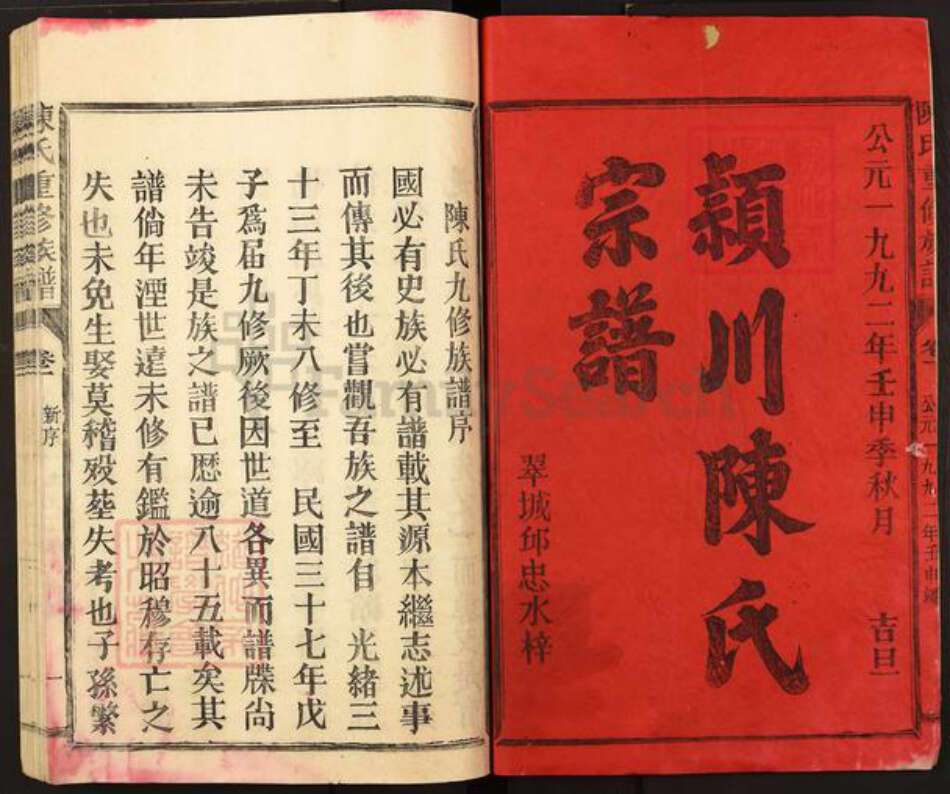 公元一九九二年壬申季秋月　吉旦
穎川陳氏
宗譜
翠城邱忠水梓
陳氏九修族譜序
國必有史族必有譜載其源本繼志述事
而傳其後也嘗觀吾族之譜自　光緒三
十三年丁未八修至　民國三十七年戊
子爲届九修厥後因世道各異而譜牒尚
未告竣是族之譜已歷逾八十五載矣其
譜倘年湮世遠未修有鑑於昭穆存亡之
失也未免生娶莫稽殁塟失考也子孫繁
陳氏重修族譜　卷一　新序　一
FamilySearch